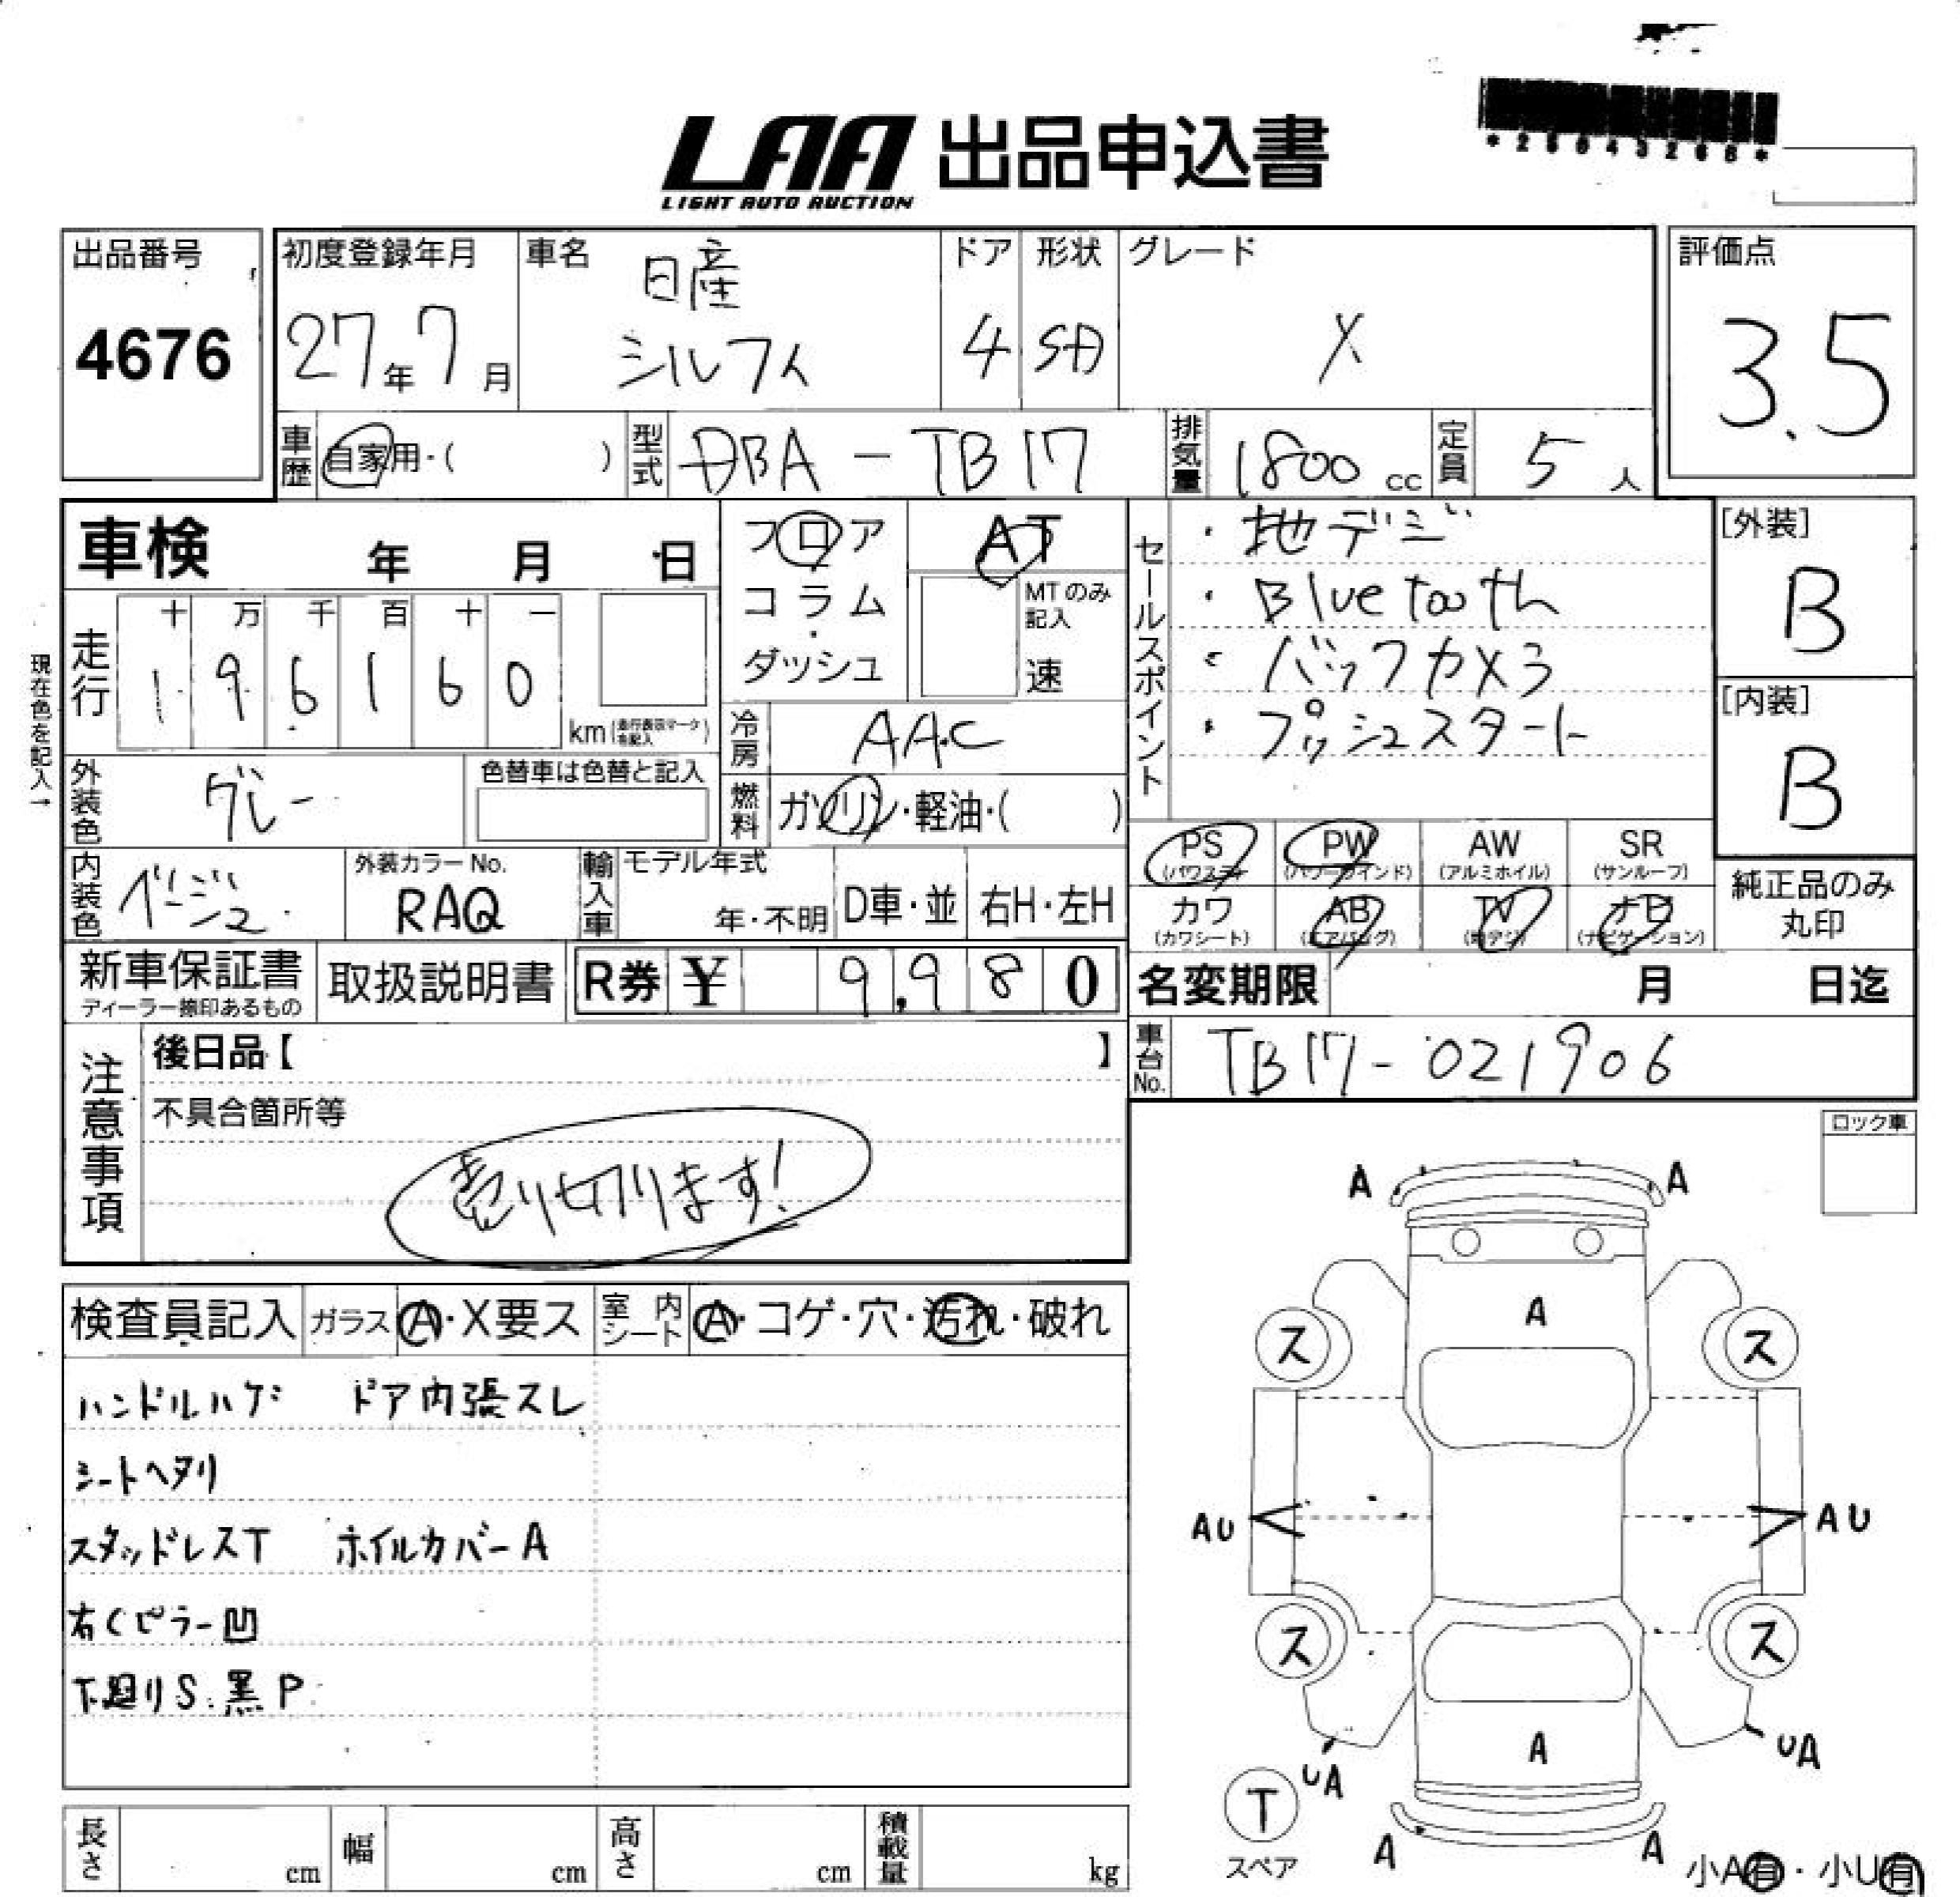 LAA 出品申込書
LIGHT AUTO AUCTION
出品番号
4676
初度登録年月
27年7月
車名
日産
シルフィ
ドア
4
形状
SD
グレード
X
評価点
3.5
車歴 自家用・( )
型式 DBA-TB17
排気量 1800cc
定員 5人
車検 年 月 日
フロア
コラム
・
ダッシュ
AT
MTのみ
記入
速
セールスポイント
・地デジ
・Bluetooth
・バックカメラ
・プッシュスタート
[外装]
B
[内装]
B
現在色を記入→
走行
十 万 千 百 十 一
1 9 6 1 6 0
km(走行表示マークを記入)
冷房 AAC
外装色 グレー
色替車は色替と記入
燃料 ガソリン・軽油・( )
PS
(パワステ)
PW
(パワーウインド)
AW
(アルミホイル)
SR
(サンルーフ)
カワ
(カワシート)
AB
(エアバッグ)
TV
(地デジ)
ナビ
(ナビゲーション)
純正品のみ
丸印
内装色 ベージュ
外装カラーNo.
RAQ
輸入車
モデル年式
年・不明
D車・並
右H・左H
新車保証書
ディーラー捺印あるもの
取扱説明書
R券 ¥ 9,980
名変期限 月 日迄
車台No. TB17-021906
注意事項
後日品【 】
不具合箇所等
売り切ります!
ロック車
検査員記入
ガラス A・X要ス
室内シート A・コゲ・穴・汚れ・破れ
ハンドルハゲ ドア内張スレ
シートヘタリ
スタッドレスT ホイルカバーA
右Cピラー凹
下廻りS.黒P
A A
A
ス ス
AU AU
ス ス
UA A UA
T
スペア
A A
小A有・小U有
長さ cm
幅 cm
高さ cm
積載量 kg